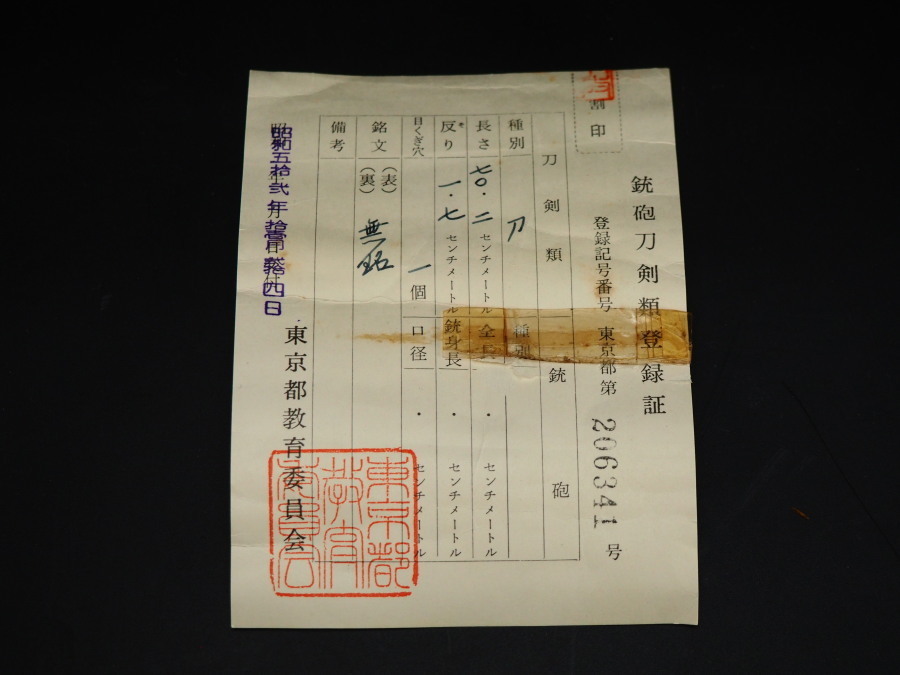 銃砲刀剣類登録証
割印
登録記号番号 東京都第 206341 号
刀剣類 銃砲
種別 刀 種別
長さ 七〇・二 センチメートル 全長 ・ センチメートル
反り 一・七 センチメートル 銃身長 ・ センチメートル
目くぎ穴 一個 口径 ・ センチメートル
銘文 (表) 無銘
(裏)
備考
昭和五拾弐年拾壱月弐拾四日
東京都教育委員会
東京都
教育
委員会